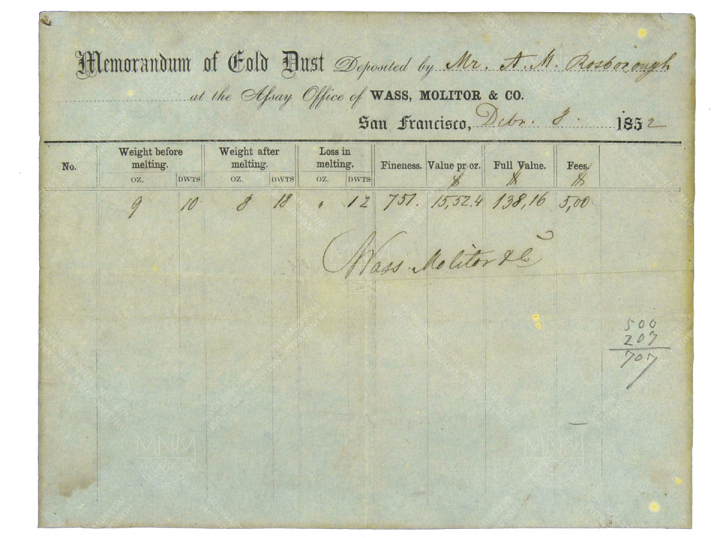 Memorandum of Gold Dust Deposited by Mr. A. M. Rosborough
at the Assay Office of WASS, MOLITOR & CO.
San Francisco, Decbr. 8. 1852
No. Weight before melting. Weight after melting. Loss in melting. Fineness. Value pr. oz. Full Value. Fees.
OZ. DWTS OZ. DWTS OZ. DWTS $ $ $
9 10 8 18 " 12 751. 15,52.4 138,16 5,00
Wass Molitor & Co
500
207
707
MNM
MNM